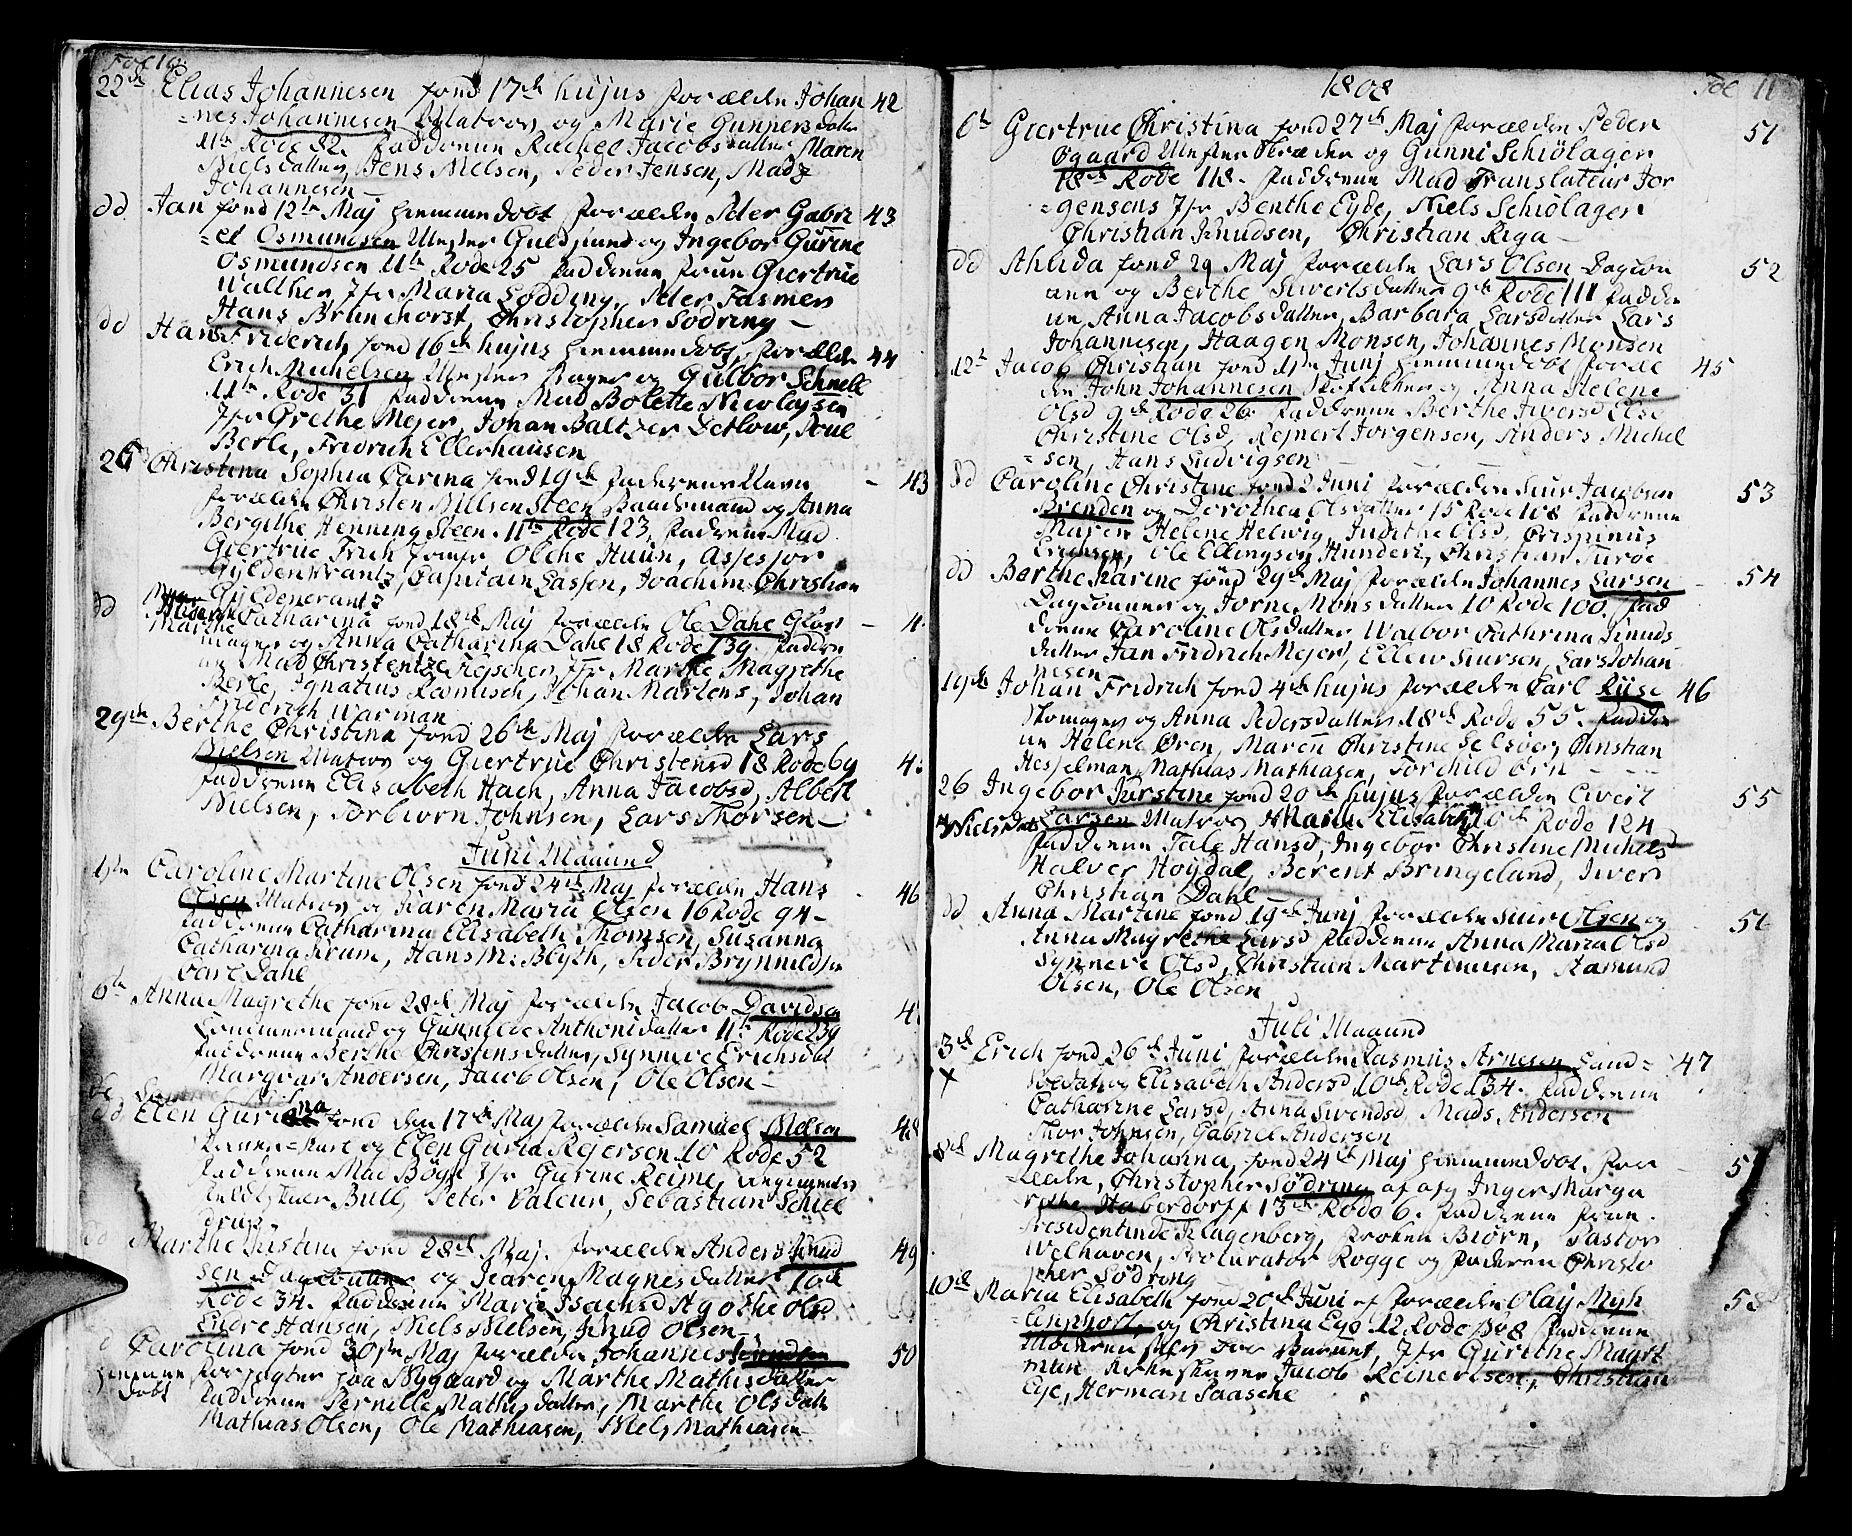 Fol 10.
22de Elias Johannesen født 17de hujus forældre Johan 42
=nes Johannesen Matros og Marie Gunnersdatter
11te Rode 82. fadderne Rachel Jacobsdatter Maren
Nielsdatter, Jens Nielsen, Peder Jensen, Madz
Johannesen
dd Jan født 12te Maj hiemmedøbt forældre Peter Gabri 43
=el Osmundsen Mester Guldsmed og Ingebor Gurine
Osmundsen 11te Rode 25 fadderne frue Giertrue
Walther, Jfr Maria Lødding, Peter Fasmer
Hans Brunchorst, Christopher Sødring
dd Hans Friderich født 16de hujus hiemmedøbt, forældre 44
Erich Michelsen Mester Bager og Gulbor Schnell
11te Rode 31 fadderne Mad Bolette Nicolaysen
Jfr Grethe Mejer, Johan Baltzer Detlow, Poul
Berle, Fridrich Ellerhausen
26 Christina Sophia Carina født 19de 43
forældre Christen Nielsen Steen Baadsmand og Anna
Bergithe Henning Steen. 11te Rode 123, fadderne Mad
Giertrue Frich Jomfr Olche Huun, Assessor
Gyldenkrantz, Captain Lassen, Joachim Christian
Gyldenkrantz
dd Marthe Catharina født 18de Maj forældre Ole Dahl Glar 4
mager og Anna Catharina Dahl 18 Rode 139. faddern
ne Mad Christentze Fiescher, Jfr Marthe Magrethe
Berle, Ignatius Rennisch, Johan Martens, Johan
Friedrich Warman
29de Berthe Christina født 26de Maj forældre Lars
Nielsen Matros og Giertrue Christensd 18 Rode 69 4
fadderne Elisabeth Hach, Anna Jacobsd, Albert
Nielsen, Torbiørn Johnsen, Lars Thorsen
Juni Maaned
1ste Caroline Martine Olsen født 24de Maj forældre Hans 46
Olsen Matros og Karen Maria Olsen 16 Rode 94
fadderne Catharina Elisabeth Thomsen, Susanna
Catharina Krum, Hans M: Blyth, Peder Brynnildsen
Carl Dahl
6te Anna Magrethe født 28de Maj forældre Jacob Davidsen 4
Tømmermand og Gunnilde Anthonidatter 11te Rode 239
fadderne Berthe Christensdatter, Synneve Erichsdat
Margvar Andersen, Jacob Olsen, Ole Olsen
dd Elen Gurina født den 17de Maj forældre Samuel Nielsen 48
og Elen Guria Rejersen 10 Rode 52
fadderne Mad Bøgh Jfr Gurine Reime,
Bull, Peter Valeur, Sebastian Schiel
drup
dd Marthe Kistine født 28de Maj. forældre Anders Knud 49
sen og Karen Magnesdatter 10de
Rode 34. fadderne Marie Isachsd Agothe Olsd
Endre Hansen, Niels Nielsen, Knud Olsen
d Carolina født 30te Maj forældre Johannes 50
hiemme forpagter paa Nygaard og Marthe Mathisdatter
døbt fadderne Pernille Mathisdatter, Marthe Olsdatt
Mathias Olsen, Ole Mathiasen, Niels Mathiasen
1808 Fol 11
6te Giertrue Christina født 27de Maj forældre Peder 51
Øgaard Mester Skræder og Gunni Schiölager
18de Rode 118. fadderne Mad Translateur Jør
=gensens Jfr Benthe Eyde, Niels Schiölager
Christian Knudsen, Christian Riga
dd Ahlida født 29 Maj forældre Lars Olsen Dagløn 52
ner og Berthe Siwertsdatter 9de Rode 111 fadder
ne, Anna Jacobsdatter, Barbara Larsdatter Lars
Johannesen, Haagen Monsen, Johannes Monsen
12te Jacob Christian født 1ste Junj hiemmedøbt foræl 45
dre John Johannesen og Anna Helene
Olsd 9de Rode 26. fadderne Berthe Iversd Else
Christine Olsd, Rejnert Jørgensen, Anders Michel
=sen, Hans Ludvigsen
dd Caroline Christine født 2 Juni forældre Siur Jacobsen 53
Brenden og Dorothea Olsdatter 15 Rode 108 fadderne
Maren Helene Helwig, Judithe Olsd, Crispinus
Erichsen, Ole Ellingsen Hunderi, Christian Turøe
dd Berthe Karine født 29de Maj forældre Johannes Larsen 54
Daglønner og Jorne Monsdatter 10 Rode 100. fad
derne Caroline Olsdatter Walbor Cathrina Knuds
datter Jan Fridrich Mejer, Ellew Siursen, Lars Johan
nesen
19de Johan Fridrich født 4de hujus forældre Carl Riise 46
Skomager og Anna Pedersdatter 18de Rode 55. fadder
ne Helene Ören, Maren Christine Selsöer, Christian
Hesselman, Mathias Mathiasen, Torchild Örn
26 Ingebor Kirstine født 20de hujus forældre Ewert 55
Larsen Matros og Maria Elisabeth Nielsdat 10de Rode 124
fadderne Tale Hansd, Ingebor Christine Michelsd
Halver Høydal, Berent Bringeland, Iver
Christian Dahl
dd Anna Martine født 19de Junj forældre Siur Olsen og 56
Anna Magrethe Larsd fadderne Anna Maria Olsd
Synneve Olsd, Christian Martinusen, Aamund
Olsen, Ole Olsen
Juli Maaned
3de Erich født 26de Juni forældre Rasmus Arnesen Land= 47
x Soldat og Elisabeth Andersd 10de Rode 134. fadderne
Catharine Larsd, Anna Swendsd, Mads Andersen
Thor Johnsen, Gabriel Andersen
8de Magrethe Johanna, født 24de Maj hiemmedøbt. for 5
ældre, Christopher Södring og Inger Marga
rethe Haberdorff 13de Rode 6. fadderne frue
Præsidentinde Klagenberg, frøken Biørn, Pastor
Welhaven, Procurator Rogge og faderen Christo
pher Södring
10de Maria Elisabeth født 20de Juni af forældre Olaj Myh 58
=lenphort, og Christina Ege 12 Rode 308 fadderne
Moderen selv bar Barnet, Jfr Gurethe Maart
man Jacob Reinertsen, Christian
Ege, Herman Saasche